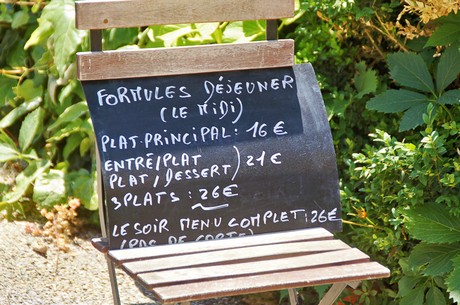 FORMULES DÉJEUNER
(LE MIDI)
PLAT-PRINCIPAL: 16 €
ENTRÉ/PLAT
PLAT/DESSERT) 21 €
3PLATS: 26 €
LE SOIR MENU COMPLET: 26 €
(PAS DE CARTE)